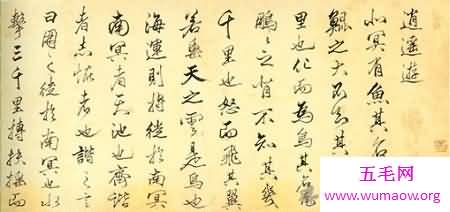 逍遥遊
北冥有魚其名
鯤之大不知其
里也化而為鳥其名
鵬々之背不知其幾
千里也怒而飛其翼
若垂天之雲是鳥也
海運則將徙於南冥
南冥者天池也齊諧
者志怪者也諧之言
曰鵬之徙於南冥也水
擊三千里摶扶搖而
五毛网
www.wumaow.org